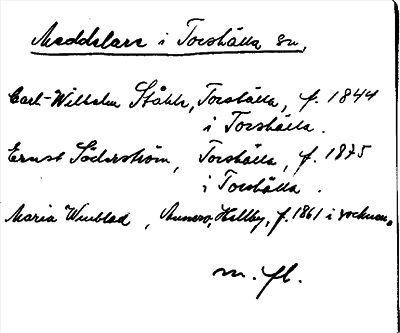 Meddelare i Torshälla sn,
Carl-Wilhelm Ståhle, Torshälla, f. 1844
i Torshälla.
Ernst Söderström, Torshälla, f. 1875
i Torshälla.
Maria Winblad, Hällby, f. 1861 i socknen.
m. fl.